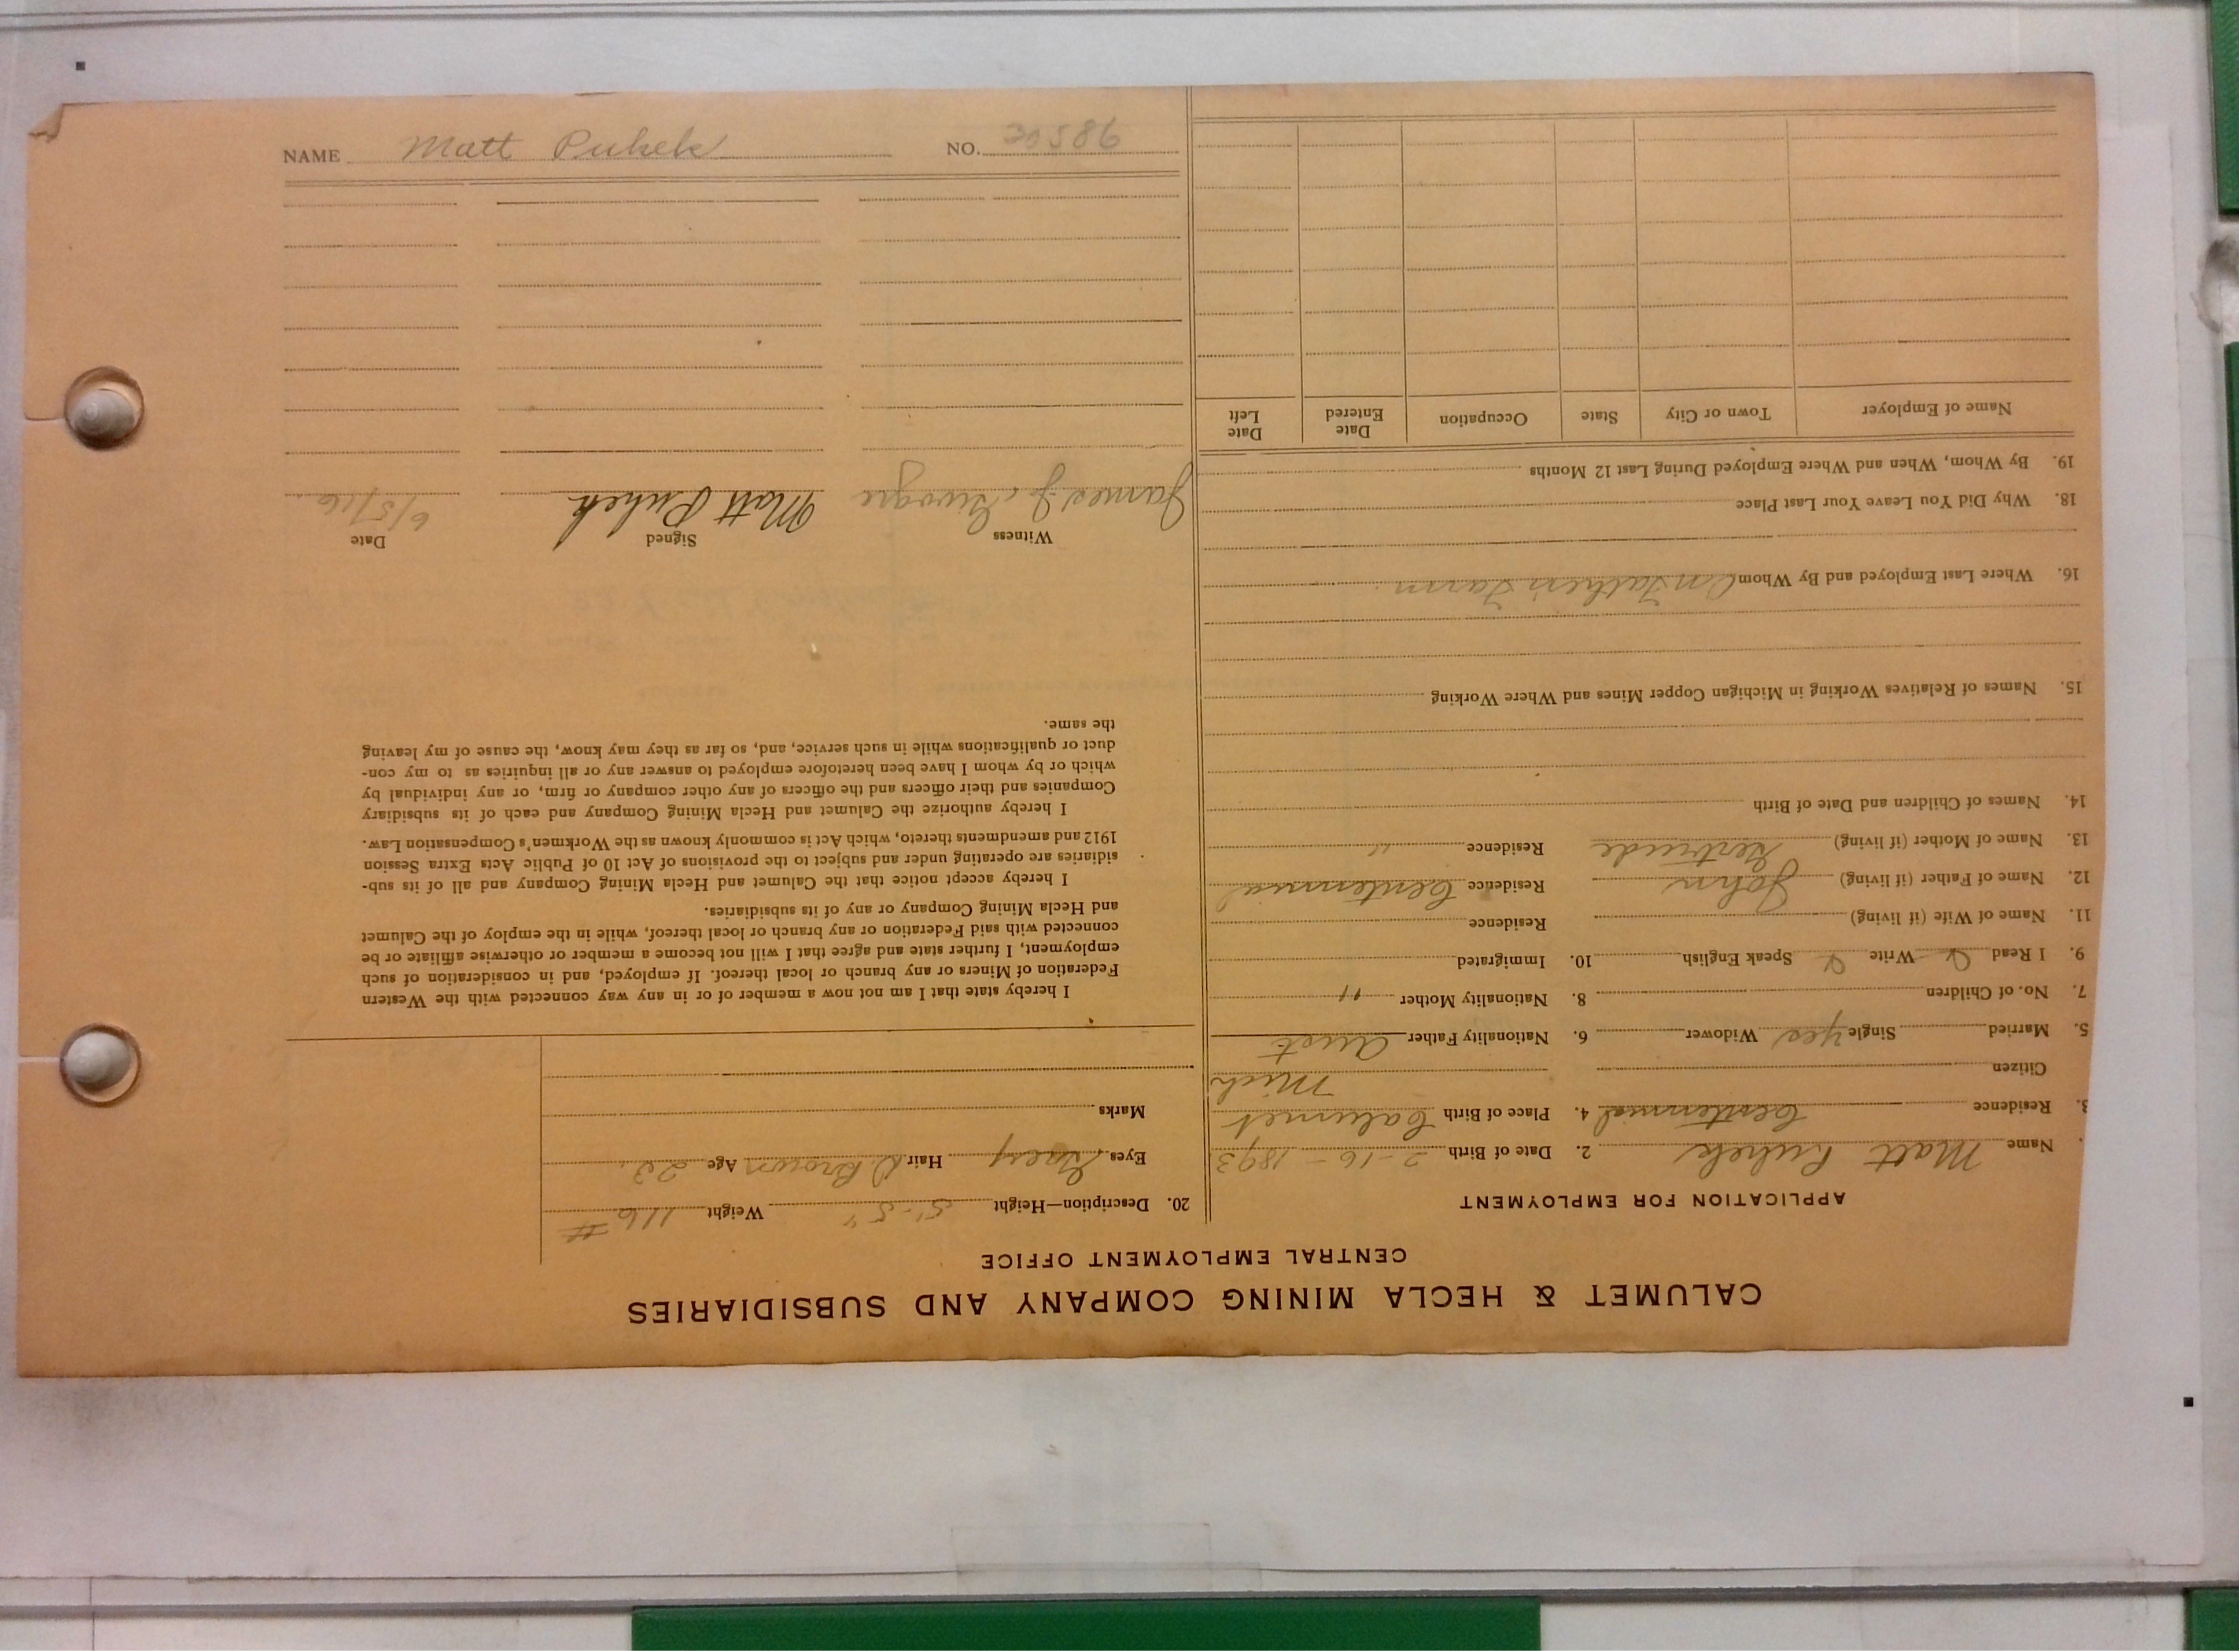 CALUMET & HECLA MINING COMPANY AND SUBSIDIARIES
CENTRAL EMPLOYMENT OFFICE
APPLICATION FOR EMPLOYMENT
Name Matt Puhek 2. Date of Birth 2-16-1893
3. Residence Centennial 4. Place of Birth Calumet
Citizen Mich
5. Married Single Yes Widower 6. Nationality Father Aust
7. No. of Children 8. Nationality Mother "
9. I Read Write Speak English 10. Immigrated
11. Name of Wife (if living) Residence
12. Name of Father (if living) John Residence Centennial
13. Name of Mother (if living) Gertrude Residence "
14. Names of Children and Date of Birth
15. Names of Relatives Working in Michigan Copper Mines and Where Working
16. Where Last Employed and By Whom On Fathers Farm
18. Why Did You Leave Your Last Place
19. By Whom, When and Where Employed During Last 12 Months
Name of Employer Town or City State Occupation Date Entered Date Left
20. Description—Height 5'-5" Weight 116 #
Eyes Grey Hair D. Brown Age 23
Marks
I hereby state that I am not now a member of or in any way connected with the Western
Federation of Miners or any branch or local thereof. If employed, and in consideration of such
employment, I further state and agree that I will not become a member or otherwise affiliate or be
connected with said Federation or any branch or local thereof, while in the employ of the Calumet
and Hecla Mining Company or any of its subsidiaries.
I hereby accept notice that the Calumet and Hecla Mining Company and all of its sub-
sidiaries are operating under and subject to the provisions of Act 10 of Public Acts Extra Session
1912 and amendments thereto, which Act is commonly known as the Workmen's Compensation Law.
I hereby authorize the Calumet and Hecla Mining Company and each of its subsidiary
Companies and their officers and the officers of any other company or firm, or any individual by
which or by whom I have been heretofore employed to answer any or all inquiries as to my con-
duct or qualifications while in such service, and, so far as they may know, the cause of my leaving
the same.
Witness Signed Date
James J. Matt Puhek 6/5/16
NAME Matt Puhek NO. 30586